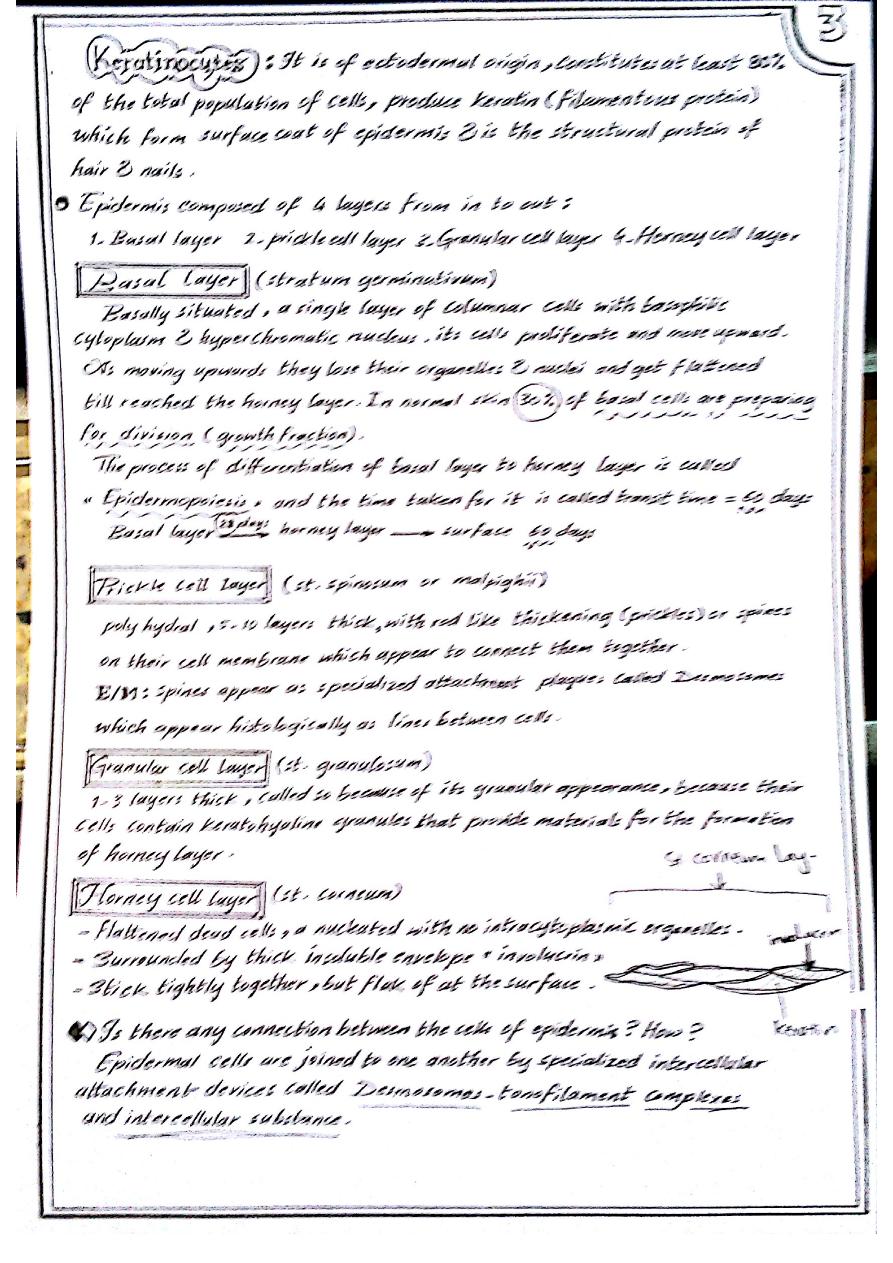 3
Keratinocytes : It is of ectodermal origin, constitutes at least 80%
of the total population of cells, produce keratin (filamentous protein)
which form surface coat of epidermis & is the structural protein of
hair & nails.
Epidermis composed of 4 layers from in to out :
1- Basal layer 2- prickle cell layer 3- Granular cell layer 4- Horney cell layer
Basal Layer (stratum germinativum)
Basally situated, a single layer of columnar cells with basophilic
cytoplasm & hyperchromatic nucleus, its cells proliferate and move upward.
As moving upwards they lose their organelles & nuclei and get flattened
till reached the horney layer. In normal skin 30% of basal cells are preparing
for division (growth fraction).
The process of differentiation of basal layer to horney layer is called
" Epidermopoiesis " and the time taken for it is called transit time = 60 days
Basal layer 28 days horney layer surface 60 days
Prickle cell layer (st. spinosum or malpighii)
poly hydral, 5-10 layers thick, with rod like thickening (prickles) or spines
on their cell membrane which appear to connect them together.
E/M: spines appear as specialized attachment plaques called Desmosomes
which appear histologically as lines between cells.
Granular cell layer (st. granulosum)
1-3 layers thick, called so because of its granular appearance, because their
cells contain keratohyaline granules that provide materials for the formation
of horney layer.
Horney cell layer (st. corneum)
- Flattened dead cells, a nucleated with no intracytoplasmic organelles.
- Surrounded by thick insoluble envelope " involucrin "
- Stick tightly together, but flak of at the surface.
Q) Is there any connection between the cells of epidermis? How?
Epidermal cells are joined to one another by specialized intercellular
attachment devices called Desmosomes-tonofilament complexes
and intercellular substance.
corneum Lay-
keratin